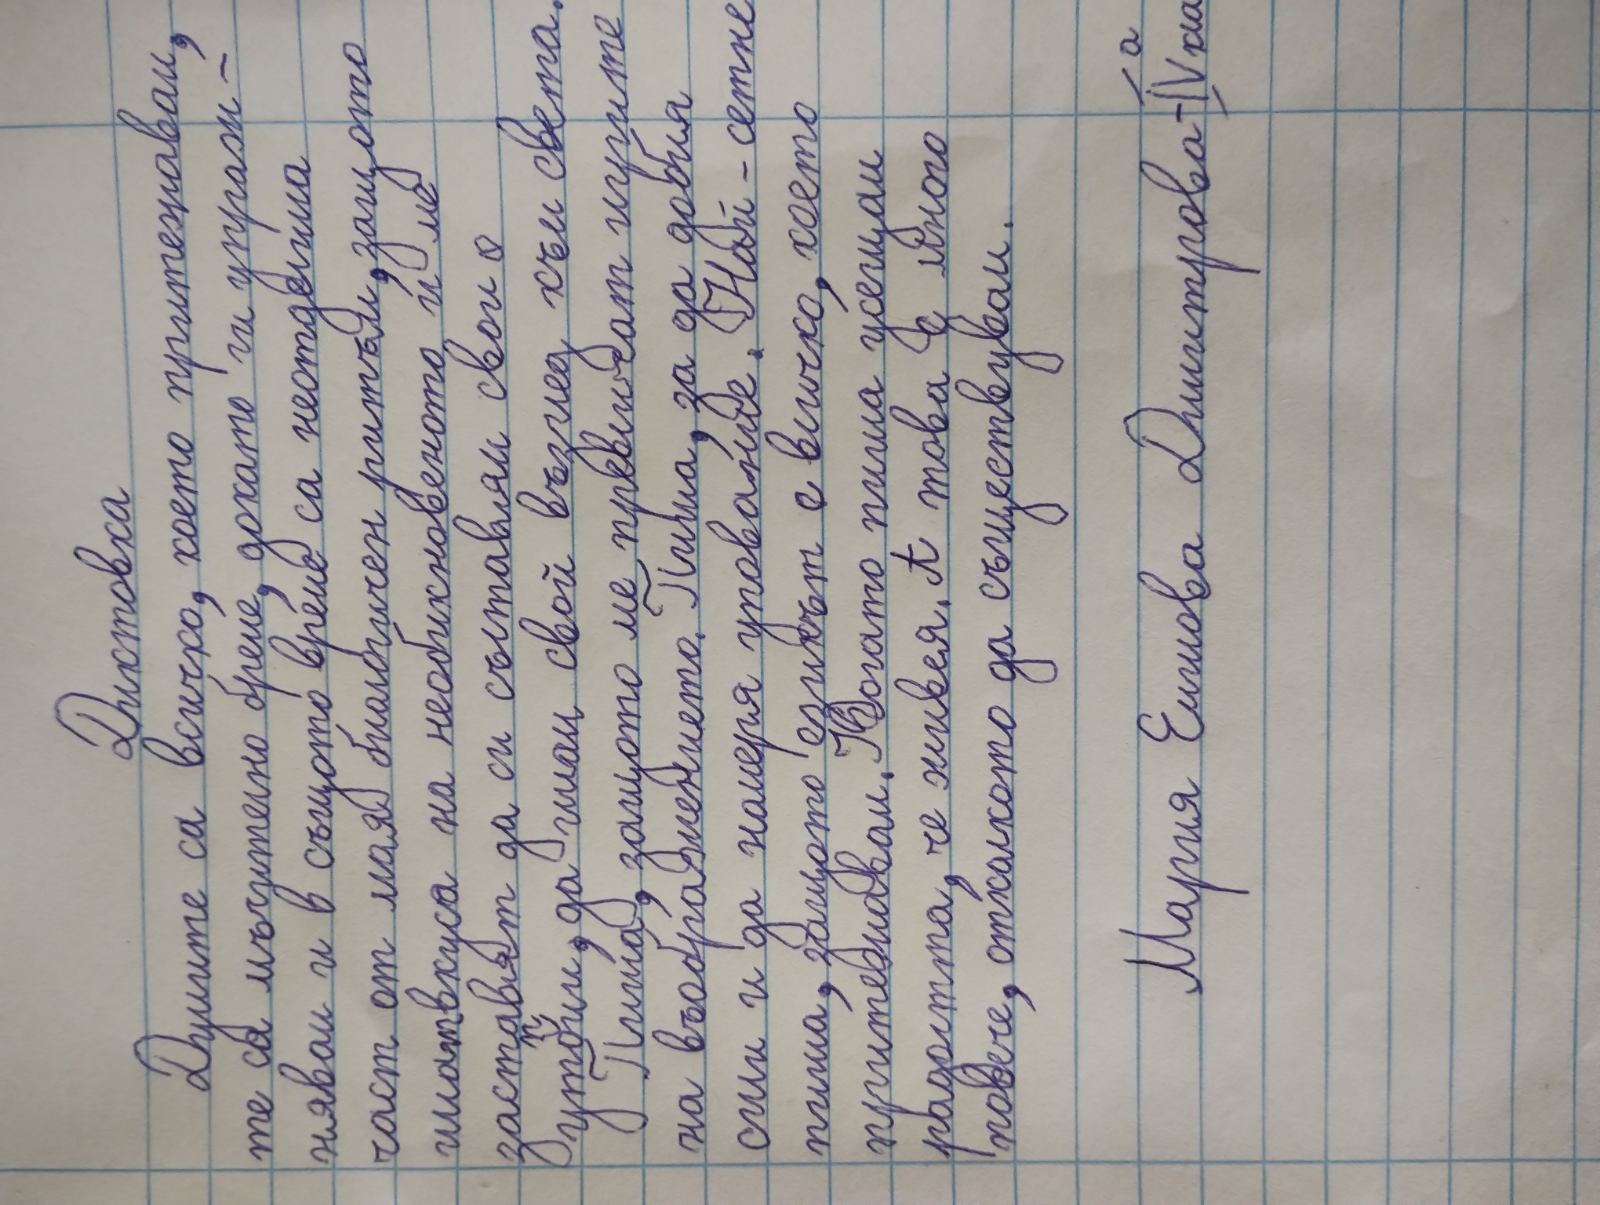 Диктовка
Думите са всичко, което притежавам,
те са мъчително бреме, докато ги упраж-
нявам и в същото време са неотделима
част от моя биологичен ритъм, защото
имат вкуса на необикновеното и ме
заставят да си съставям свои
утопии, да имам свой възглед към света.
Пиша, защото ме привличат игрите
на въображението. Пиша, за да добия
сили и да намеря упование. Най-сетне
пиша, защото езикът е всичко, което
притежавам. Когато пиша усещам
радостта, че живея. А това е много
повече, отколкото да съществувам.
Мария Емилова Димитрова - IV а кла